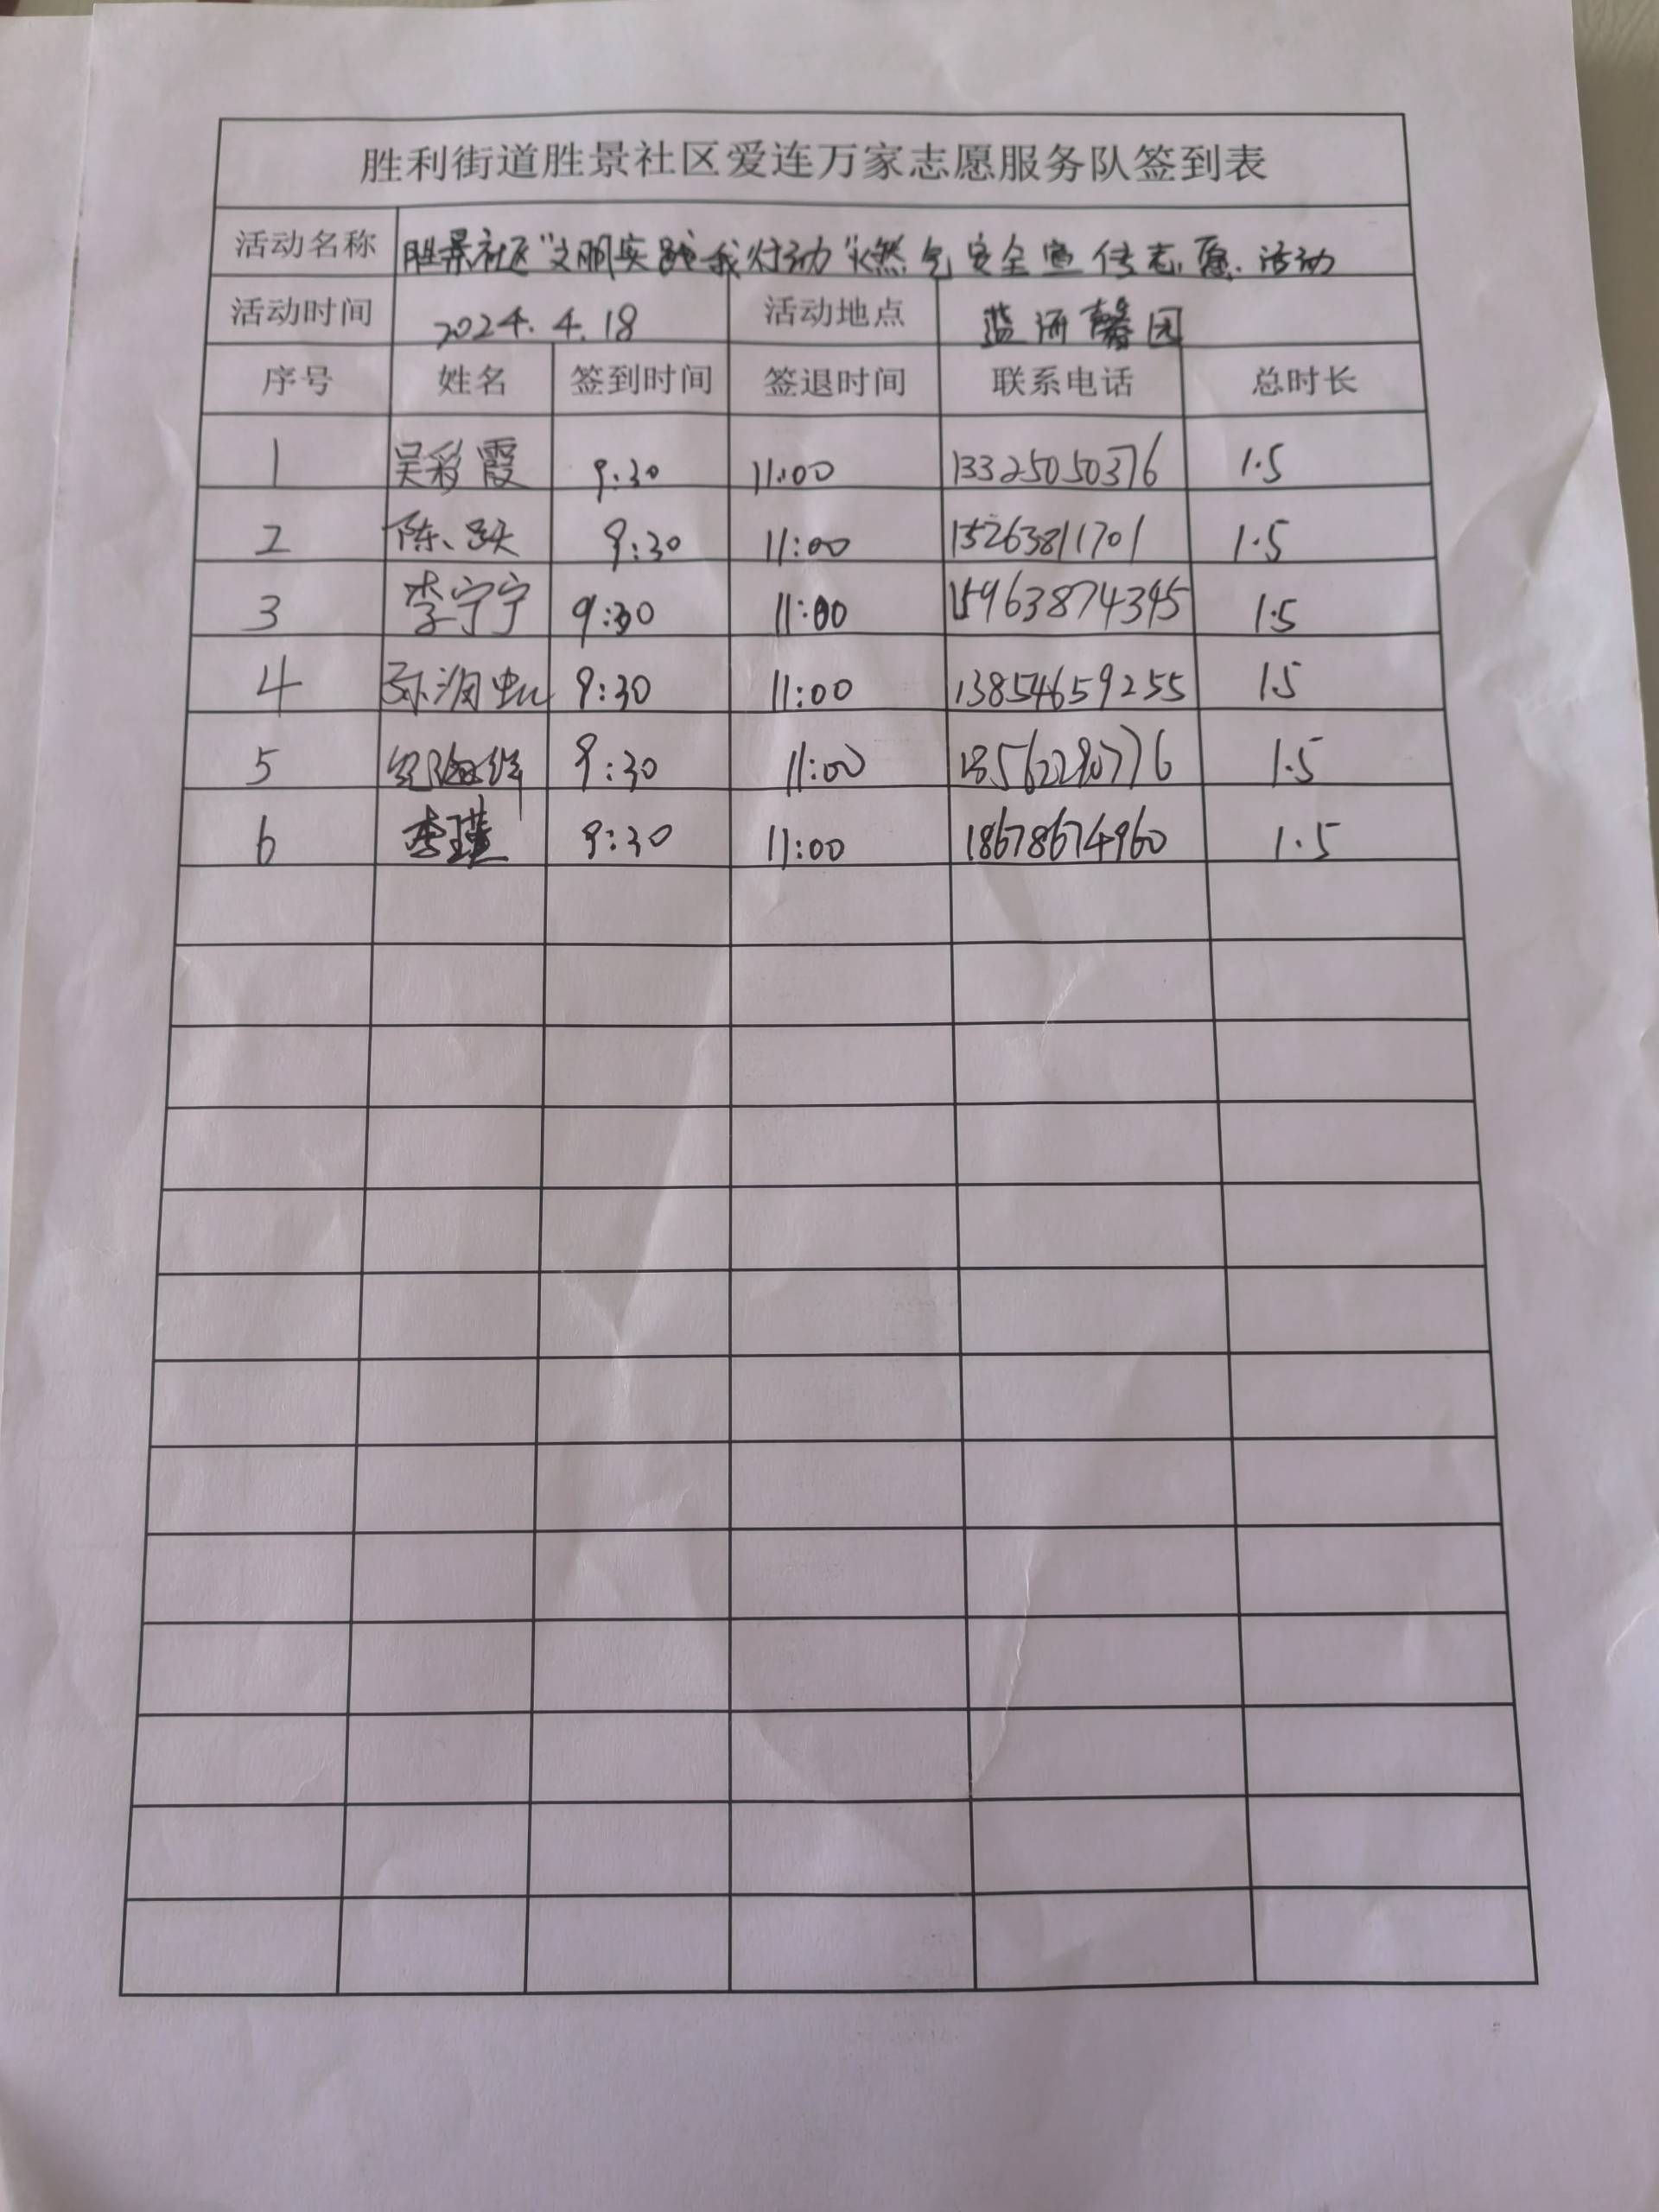 胜利街道胜景社区爱连万家志愿服务队签到表
活动名称 胜景社区“文明实践我行动”燃气安全宣传志愿活动
活动时间 2024.4.18 活动地点 蓝河馨园
序号 姓名 签到时间 签退时间 联系电话 总时长
1 吴彩霞 9:30 11:00 13325050376 1.5
2 陈跃 9:30 11:00 15263811701 1.5
3 李宁宁 9:30 11:00 15963874345 1.5
4 9:30 11:00 13854659255 1.5
5 9:30 11:00 1.5
6 李瑾 9:30 11:00 18678674960 1.5